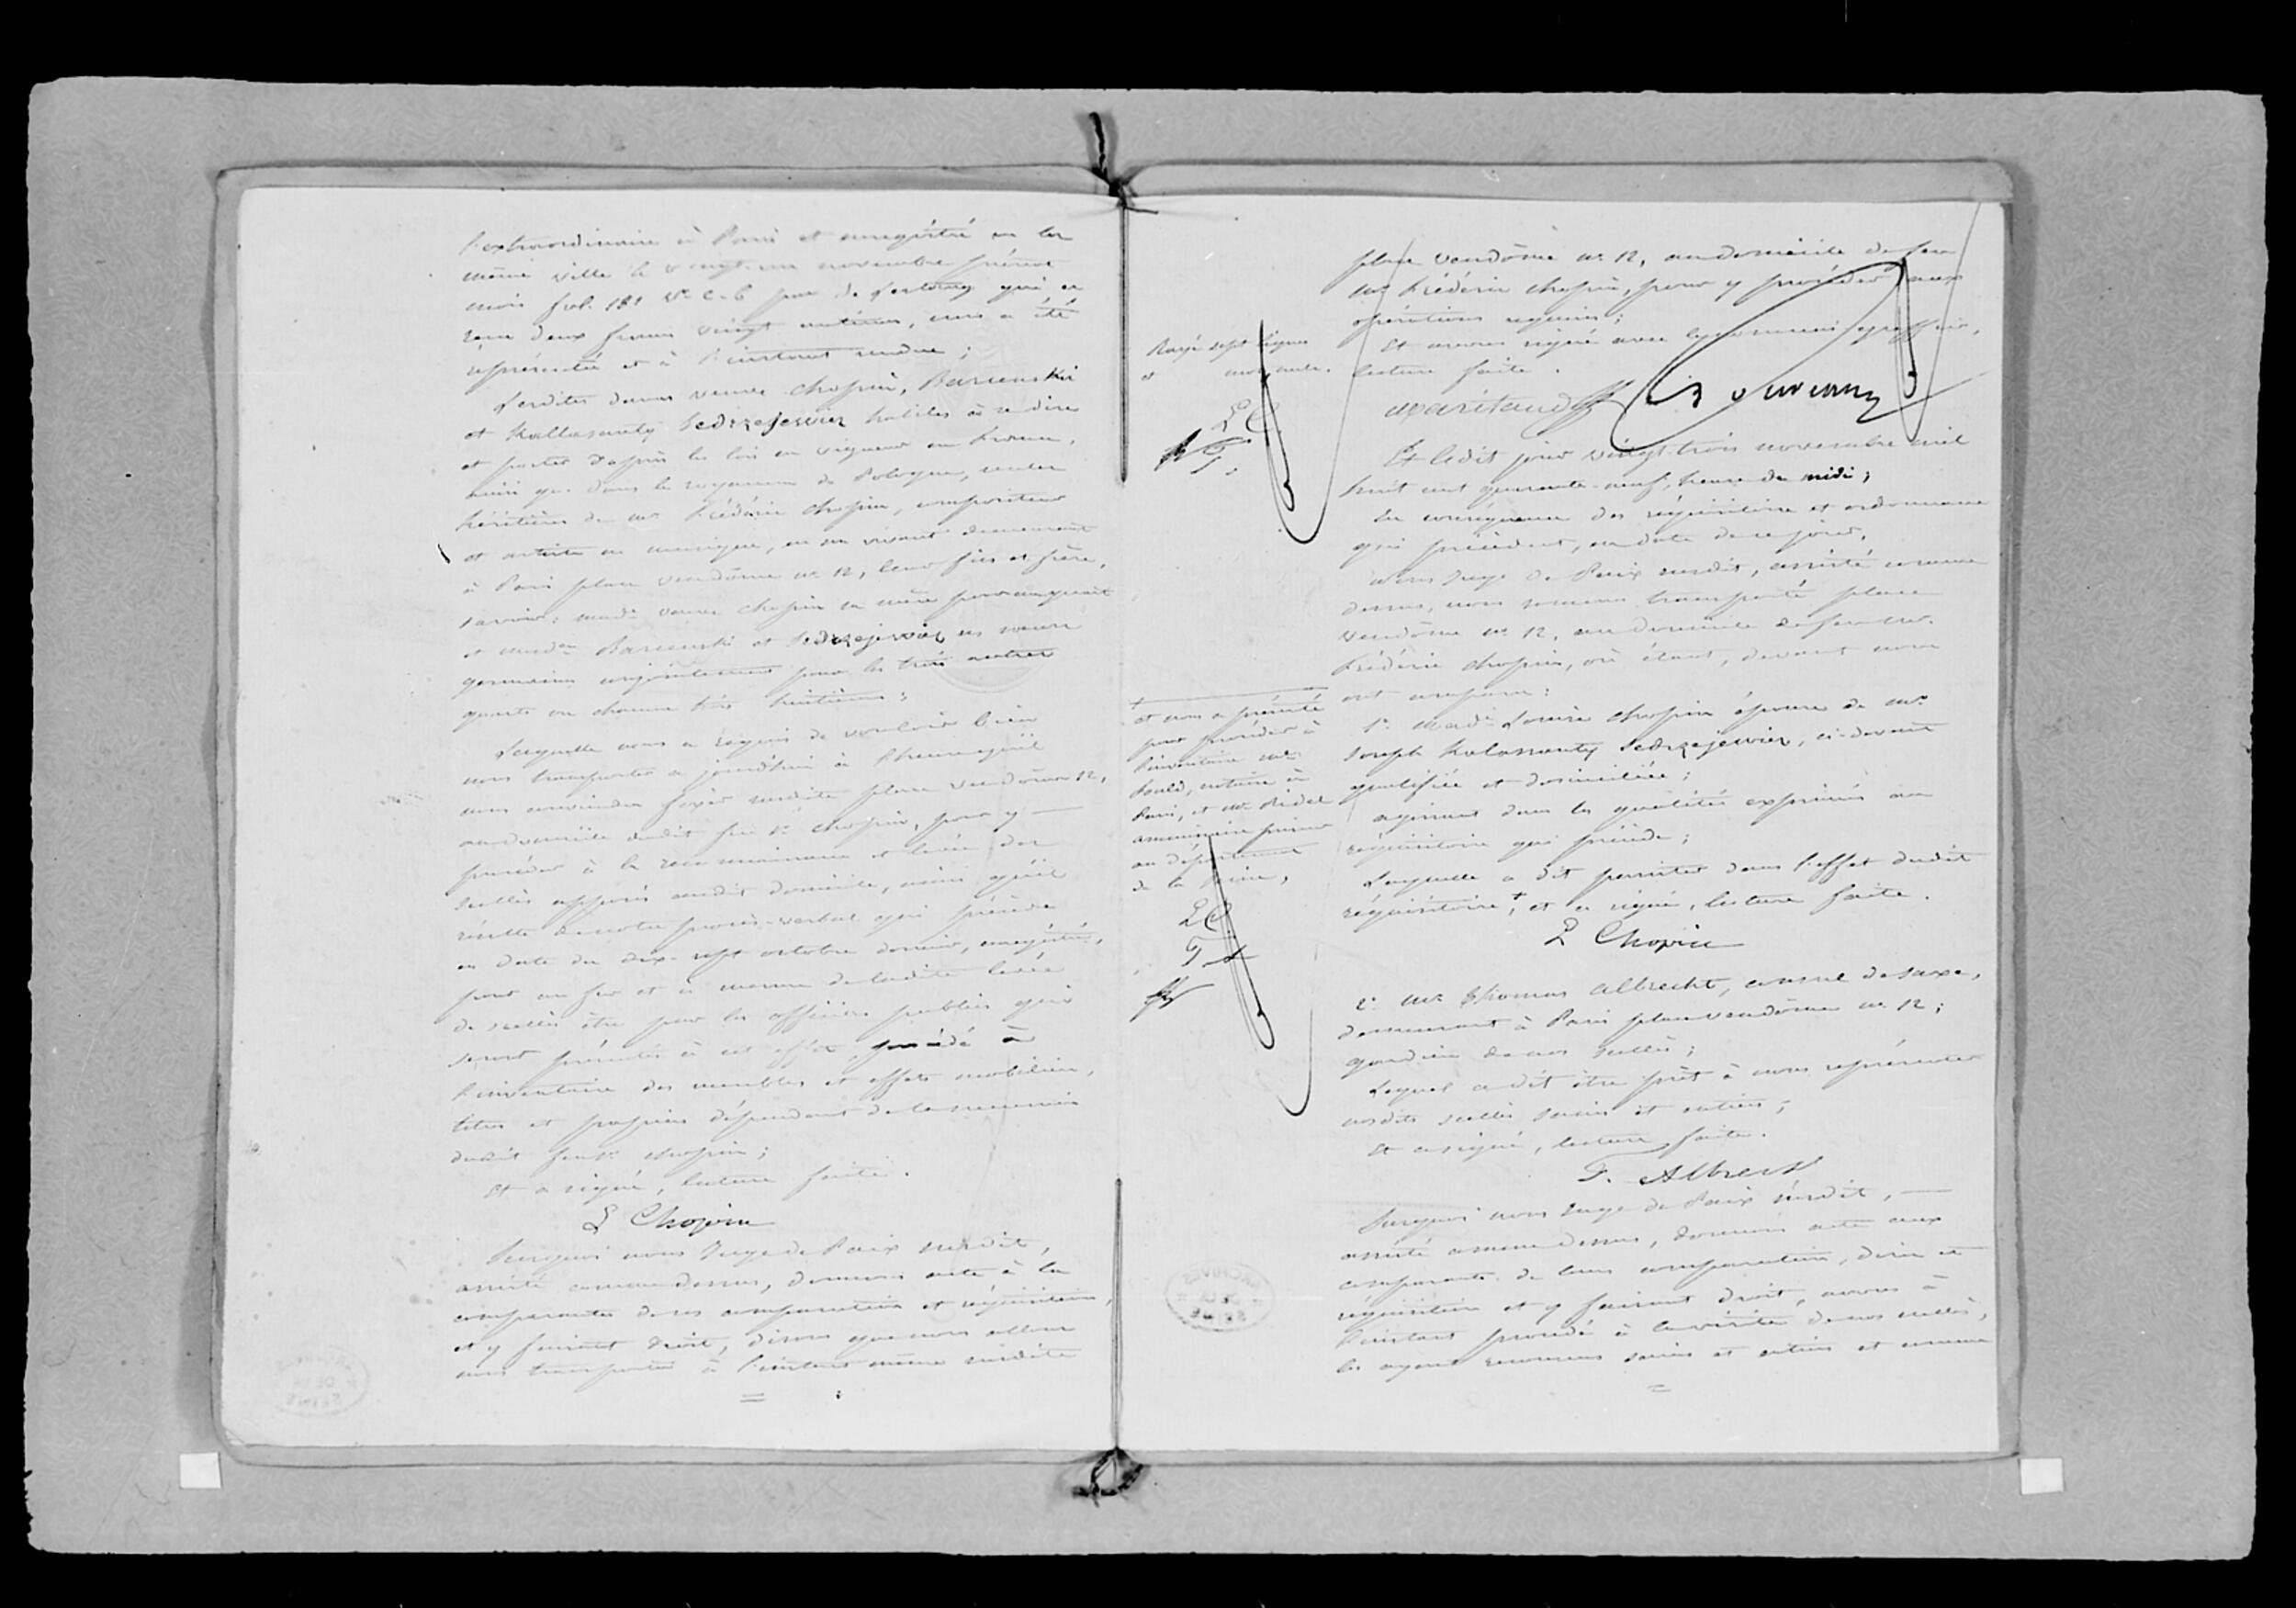 l'extraordinaire à Paris et enregistré en la
même ville le vingt-un novembre présent
mois fol. 181 Vo. C. 6 par de Lestang qui a
reçu deux francs vingt centimes, nous a été
représentée et à l'instant rendue ;
Lesdites dames veuve Chopin, Barcinski
et Kallasanty Jedrzejewicz habiles à se dire
et porter d'après les lois en vigueur en France,
ainsi que dans le royaume de Pologne, seules
héritières de Mr. Frédéric Chopin, compositeur
et artiste en musique, en son vivant demeurant
à Paris place Vendôme no. 12, leur fils et frère,
savoir : made. veuve Chopin sa mère pour un quart
et mesdes. Barcinski et Jedrzejewicz ses sœurs
germaines conjointement pour les trois autres
quarts ou chacune trois huitièmes ;
Laquelle nous a requis de vouloir bien
nous transporter aujourd'hui à l'heure qu'il
nous conviendra fixer susdite place Vendôme 12,
au domicile dudit feu Sr. Chopin, pour y
procéder à la reconnaissance et levée des
scellés apposés audit domicile, ainsi qu'il
résulte de notre procès-verbal qui précède
en date du dix-sept octobre dernier, enregistré,
pour au fur et à mesure de ladite levée
de scellés être par les officiers publics qui
seront présentés à cet effet procédé à
l'inventaire des meubles et effets mobiliers,
titres et papiers dépendant de la succession
dudit feu Sr. Chopin ;
Et a signé, lecture faite.
L Chopin
Surquoi nous Juge de Paix susdit,
assisté comme dessus, donnons acte à la
comparante de ses comparution et réquisition,
et y faisant droit, disons que nous allons
nous transporter à l'instant même susdite
place Vendôme no. 12, au domicile de feu
Mr. Frédéric Chopin, pour y procéder aux
opérations requises ;
Et avons signé avec le commis greffier,
lecture faite.
Rayé sept lignes
et
LC
T.
Et ledit jour vingt-trois novembre mil
huit cent quarante-neuf, heure de midi ;
En conséquence des réquisitoire et ordonnance
qui précèdent, en date de ce jour,
Nous Juge de Paix susdit, assisté comme
dessus, nous sommes transporté place
Vendôme no. 12, au domicile de feu Mr.
Frédéric Chopin, où étant, devant nous
ont comparu :
1o. Made. Louise Chopin épouse de Mr.
Joseph Kalassanty Jedrzejewicz, ci-devant
qualifiée et domiciliée ;
agissant dans les qualités exprimées au
réquisitoire qui précède ;
Laquelle a dit persister dans l'effet dudit
réquisitoire +, et a signé, lecture faite.
L Chopin
+ et nous a présenté
pour procéder à
l'inventaire Me.
Fould, notaire à
Paris, et Mr. Ridel
commissaire priseur
au département
de la Seine,
LC
T. A
2o. Mr. Thomas Albrecht, consul de Saxe,
demeurant à Paris place Vendôme no. 12 ;
gardien de nos scellés ;
Lequel a dit être prêt à nous représenter
nosdits scellés sains et entiers ;
Et a signé, lecture faite.
T. Albrecht
Surquoi nous Juge de Paix susdit,
assisté comme dessus, donnons acte aux
comparants de leurs comparution, dires et
réquisition et y faisant droit, avons à
l'instant procédé à la visite de nos scellés,
les ayant reconnus sains et entiers et comme
ARCHIVES
DE LA
SEINE